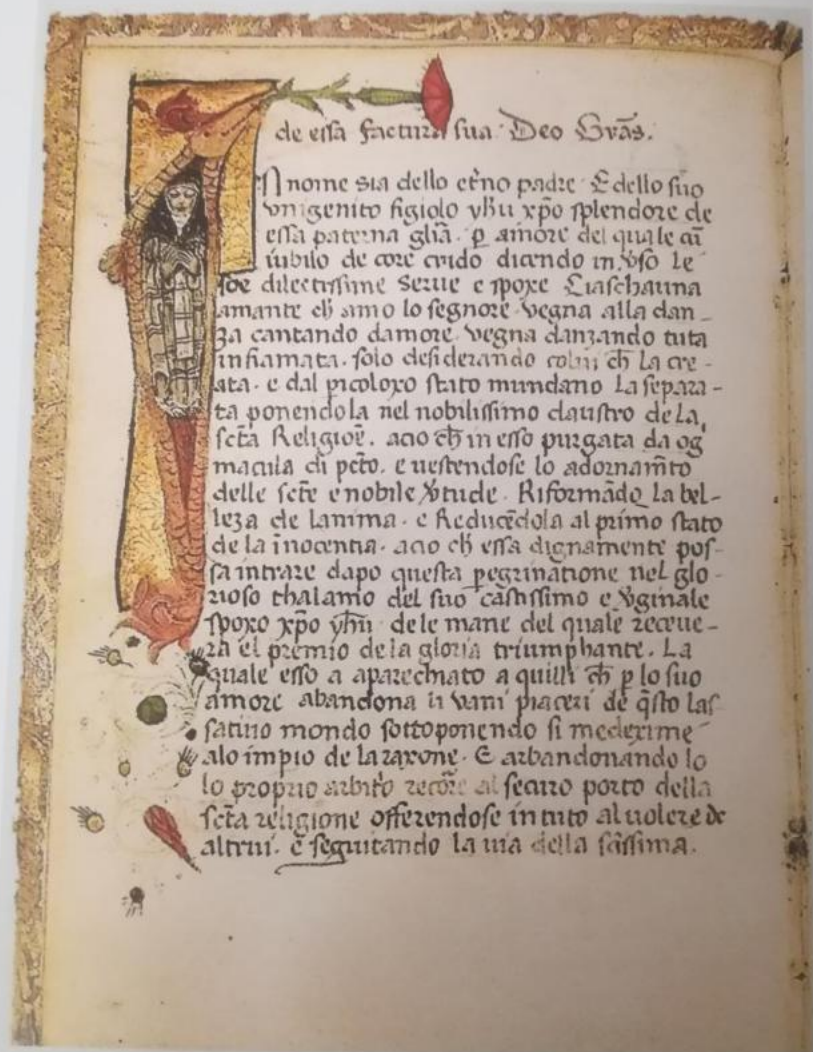 de essa factura sua· Deo Grãs.
IN nome sia dello etñno padre· E dello suo
vnigenito figiolo yhũ xp̃o splendore de
essa paterna gliã· p̱ amore del quale cũ
iubilo de core crido dicendo in v̇so le
soe dilectissime serue e spoxe Ciaschauna
amante ch̃ amo lo segnore· vegna alla dan-
za cantando damore· vegna danzando tuta
infiamata· solo desiderando colui ch̃ la cre-
ata· e dal picoloxo stato mundano la separa-
ta ponendola nel nobilissimo claustro de la
sctã Religiõe· acio ch̃ in esso purgata da og
macula di pctõ· e uestendose lo adornam̃to
delle sctẽ e nobile v̇tude· Riformãdo la bel-
leza de lanima· e Reducẽdola al primo stato
de la ĩnocentia· acio ch̃ essa dignamente pos-
sa intrare dapo questa p̱egrinatione nel glo-
rioso thalamo del suo cãstissimo e v̇ginale
spoxo xp̃o yhũ· dele mane del quale receue-
rà el premio de la gloria triumphante· La
quale esso a aparechiato a quilli ch̃ p̱ lo suo
amore abandona li vani piaceri de q̃sto las
satiuo mondo sottoponendo si medexime
alo impio de la raxone· E arbandonando lo
lo proprio arbitr̃o recor̃e al securo porto della
sctã religione offerendose in tuto al uolere de
altrui· ẽ seguitando la uia della sãssima·